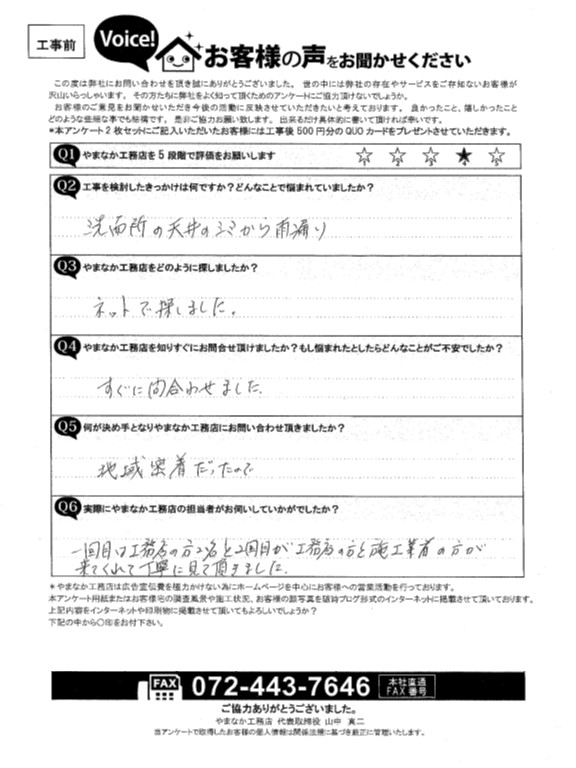 工事前
Voice!
お客様の声をお聞かせください
この度は弊社にお問い合わせを頂き誠にありがとうございました。世の中には弊社の存在やサービスをご存知ないお客様が
沢山いらっしゃいます。その方たちに弊社をよく知って頂くためのアンケートにご協力頂けないでしょうか。
お客様のご意見をお聞かせいただき今後の活動に反映させていただきたいと考えております。良かったこと、嬉しかったこと
どのような些細な事でも結構です。是非ご協力お願い致します。出来るだけ具体的に書いて頂ければ幸いです。
*本アンケート2枚セットにご記入いただいたお客様には工事後500円分のQUOカードをプレゼントさせていただきます。
Q1 やまなか工務店を5段階で評価をお願いします ☆1 ☆2 ☆3 ★4 ☆5
Q2 工事を検討したきっかけは何ですか?どんなことで悩まれていましたか?
洗面所の天井のシミから雨漏り
Q3 やまなか工務店をどのように探しましたか?
ネットで探しました。
Q4 やまなか工務店を知りすぐにお問合せ頂けましたか?もし悩まれたとしたらどんなことがご不安でしたか?
すぐに問合わせました。
Q5 何が決め手となりやまなか工務店にお問い合わせ頂きましたか?
地域密着だったので
Q6 実際にやまなか工務店の担当者がお伺いしていかがでしたか?
一回目は工務店の方2名と2回目が工務店の方と施工業者の方が
来てくれて丁寧に見て頂きました。
*やまなか工務店は広告宣伝費を極力かけない為にホームページを中心にお客様への営業活動を行っております。
本アンケート用紙またはお客様宅の調査風景や施工状況、お客様の顔写真を随時ブログ形式のインターネットに掲載させて頂いております。
上記内容をインターネットや印刷物に掲載させて頂いてもよろしいでしょうか?
下記の中から○印をお付下さい。
FAX 072-443-7646 本社直通
FAX番号
ご協力ありがとうございました。
やまなか工務店 代表取締役 山中 真二
当アンケートで取得したお客様の個人情報は関係法規に基づき厳正に管理いたします。